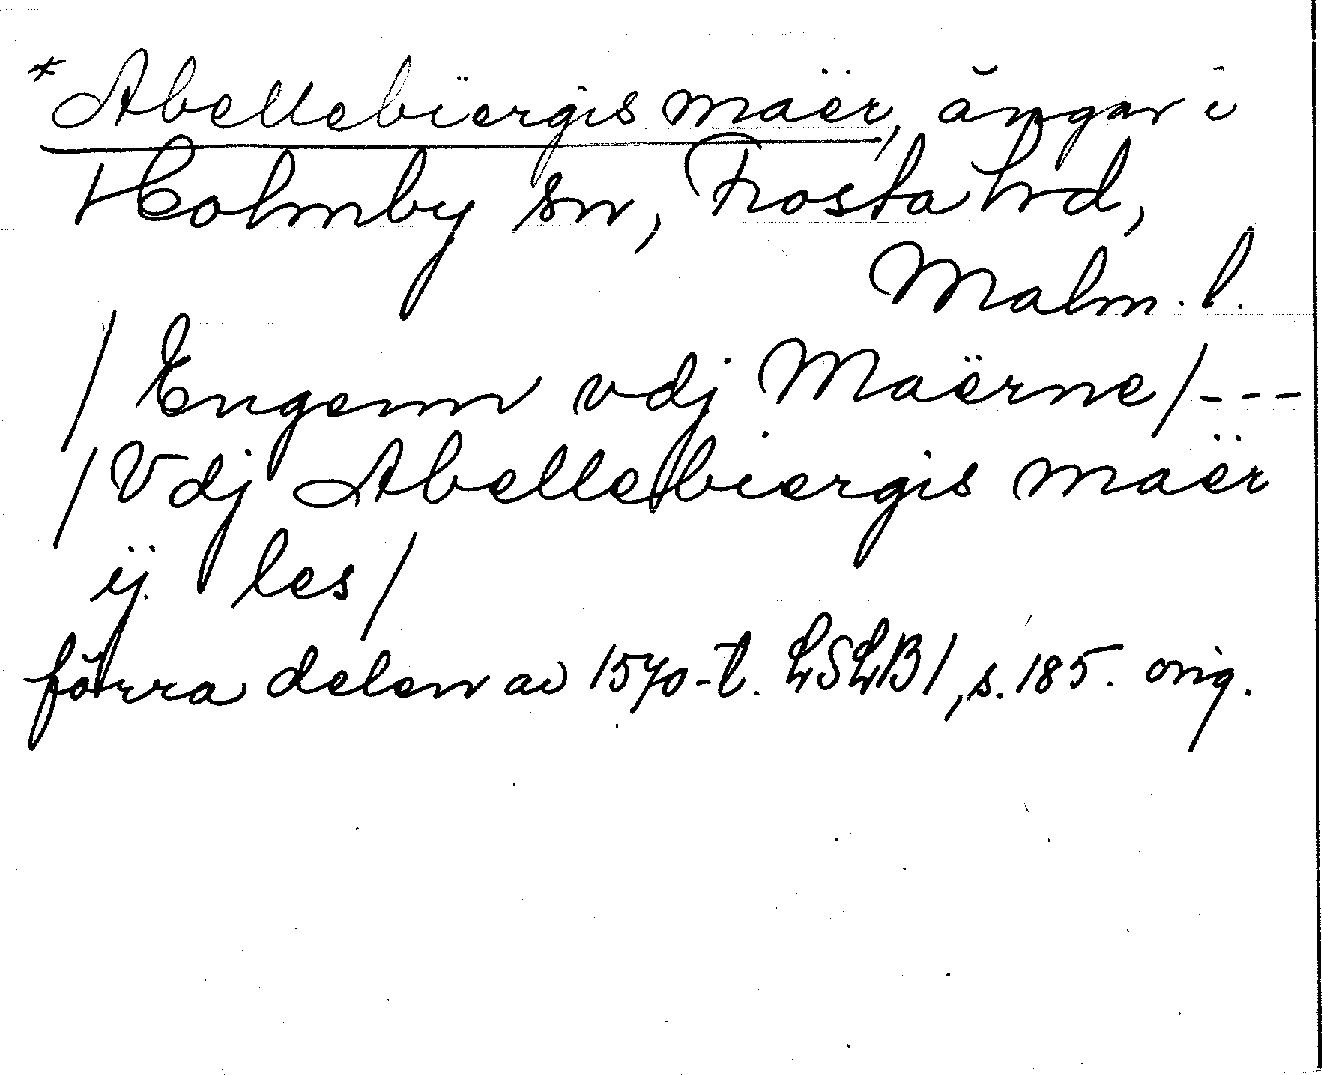 *Abellebiergis maër, ängar i
Holmby sn, Frosta hrd,
Malm. l.
/ Engenn vdj Maërne / ---
/ Vdj Abellebiergis maër
ij les /
förra delen av 1570-t. LSLB1, s. 185. orig.